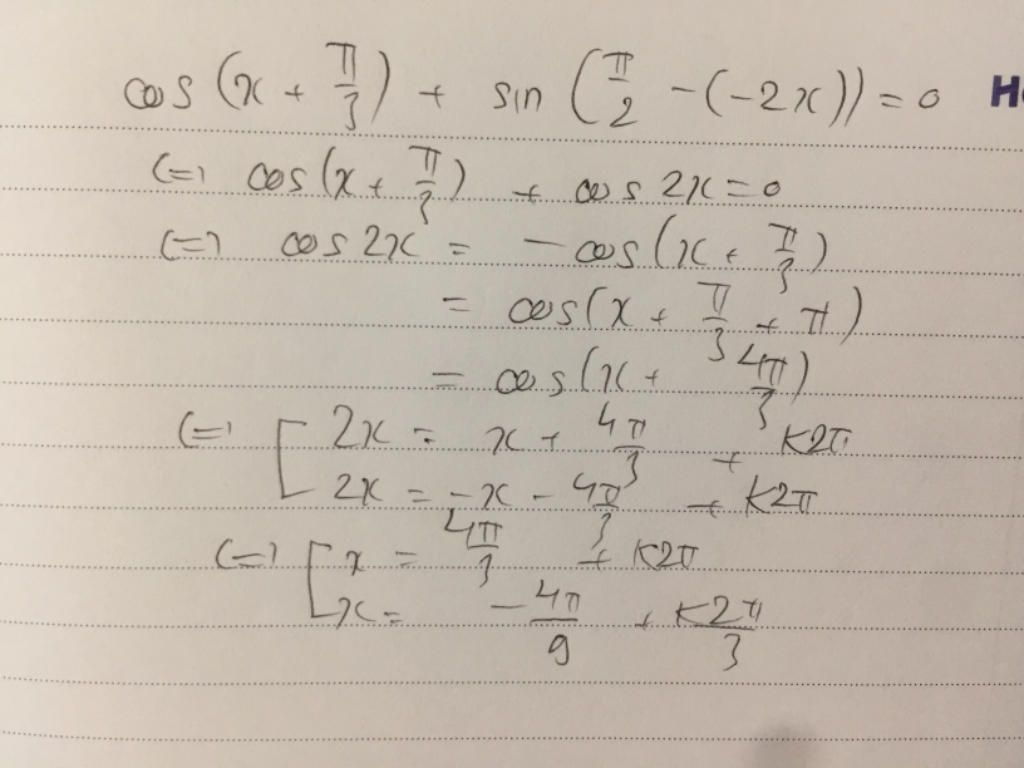 cos (x + π/3) + sin (π/2 - (-2x)) = 0
(=) cos(x + π/3) + cos 2x = 0
(=) cos 2x = - cos (x + π/3)
= cos(x + π/3 + π)
= cos(x + 4π/3)
(=) [ 2x = x + 4π/3 + k2π
2x = -x - 4π/3 + k2π
(=) [ x = 4π/3 + k2π
x = -4π/9 + k2π/3